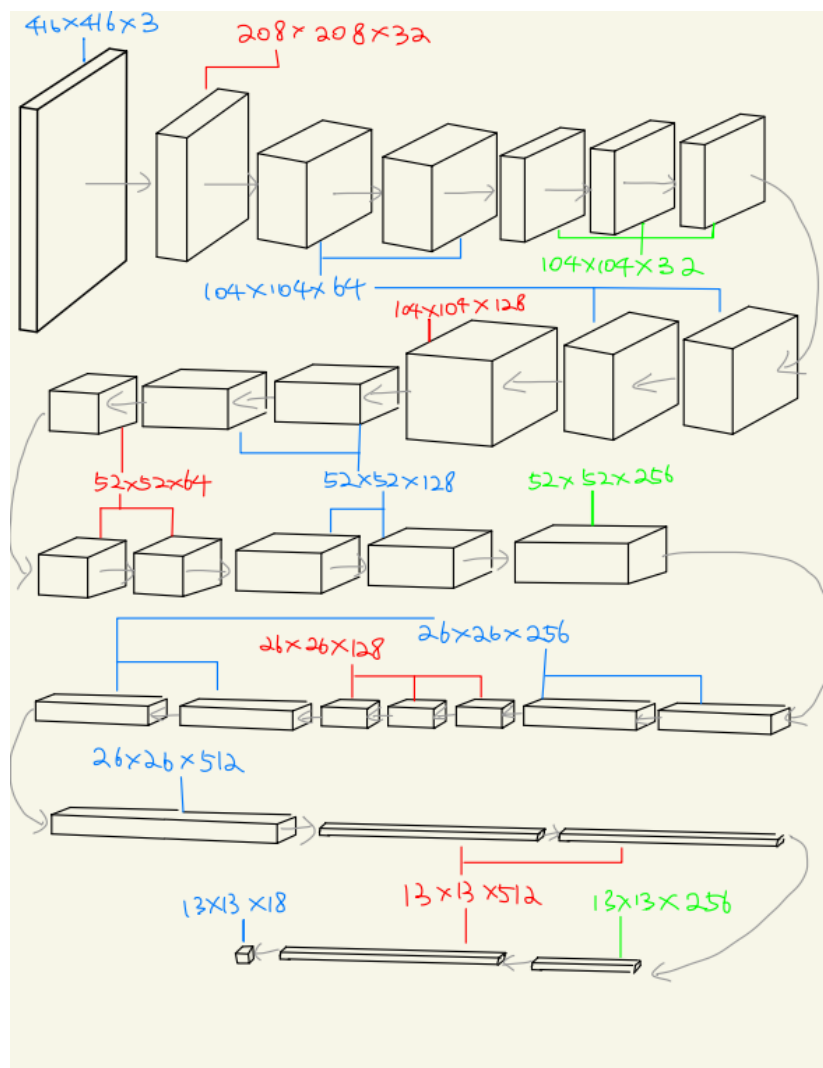 416×416×3
208×208×32
104×104×32
104×104×64
104×104×128
52×52×64
52×52×128
52×52×256
26×26×256
26×26×128
26×26×512
13×13×512
13×13×256
13×13×18